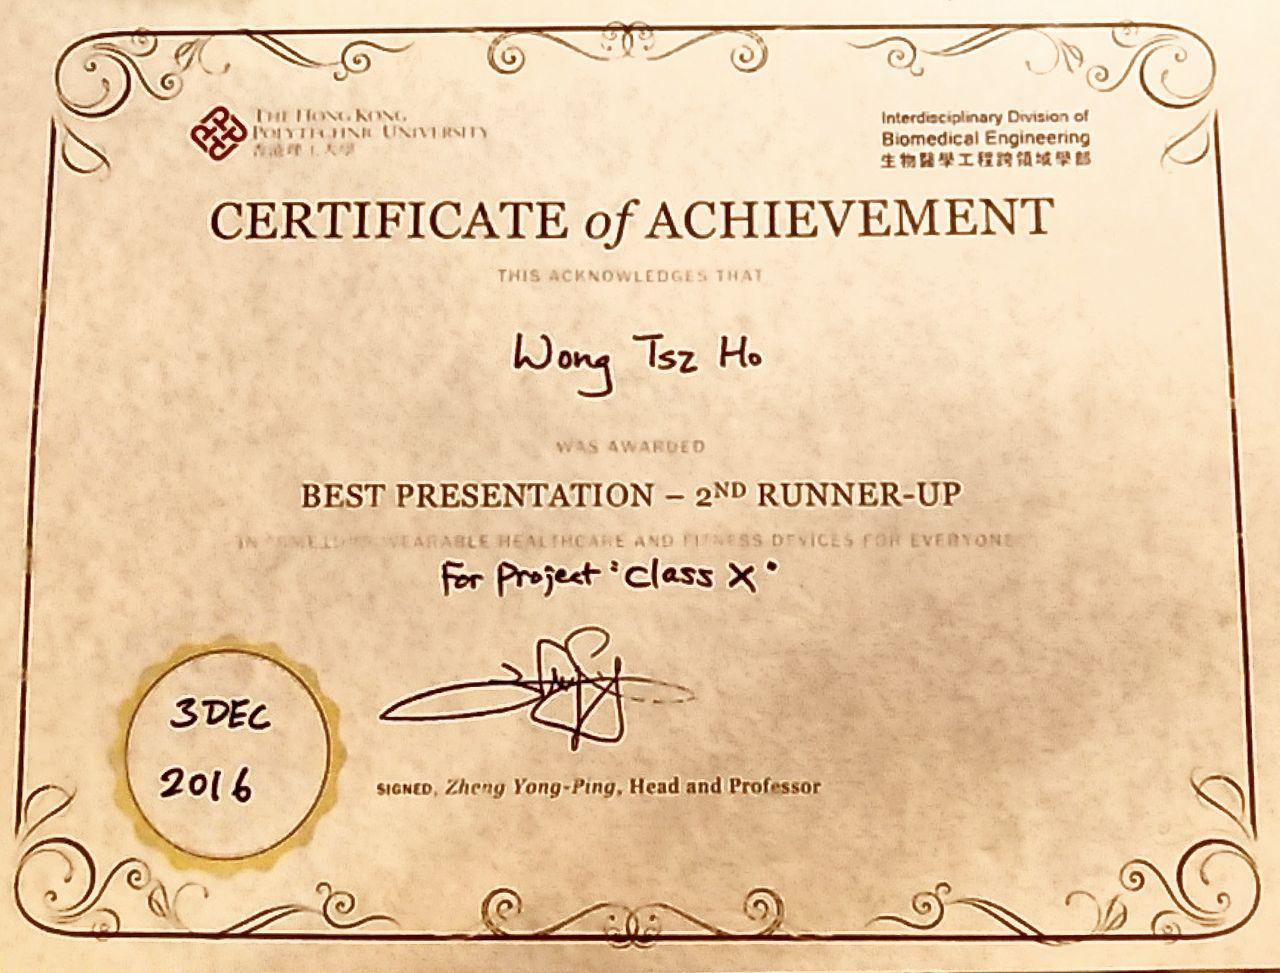 THE HONG KONG
POLYTECHNIC UNIVERSITY
香港理工大學
Interdisciplinary Division of
Biomedical Engineering
生物醫學工程跨領域學部
CERTIFICATE of ACHIEVEMENT
THIS ACKNOWLEDGES THAT
Wong Tsz Ho
WAS AWARDED
BEST PRESENTATION – 2ND RUNNER-UP
IN WEARABLE HEALTHCARE AND FITNESS DEVICES FOR EVERYONE
For Project "Class X"
3 DEC
2016
SIGNED, Zheng Yong-Ping, Head and Professor